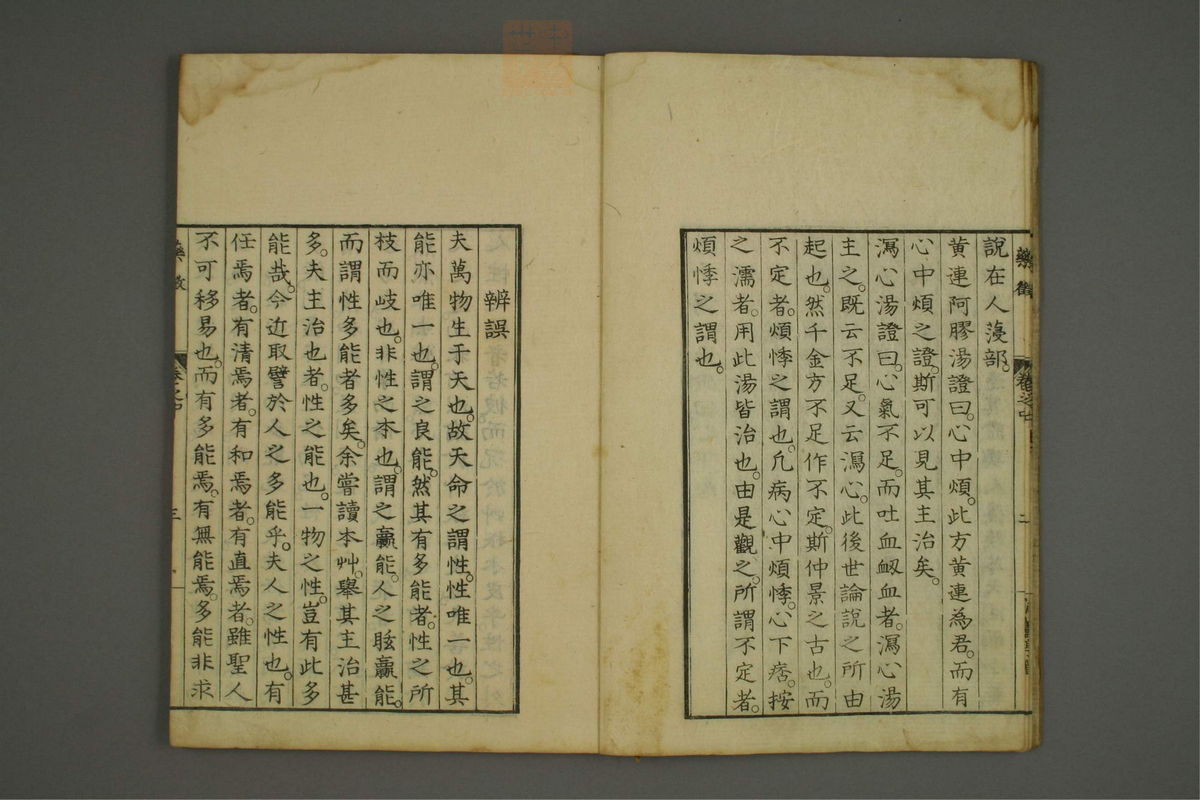 說在人葠部。
黃連阿膠湯證曰。心中煩。此方黃連為君。而有
心中煩之證。斯可以見其主治矣。
瀉心湯證曰。心氣不足。而吐血衂血者。瀉心湯
主之。既云不足。又云瀉心。此後世論說之所由
起也。然千金方不足作不定。斯仲景之古也。而
不定者。煩悸之謂也。凢病心中煩悸。心下痞。按
之濡者。用此湯皆治也。由是觀之。所謂不定者。
煩悸之謂也。
藥徵
卷之
二
辨誤
夫萬物生于天也。故天命之謂性。性唯一也。其
能亦唯一也。謂之良能。然其有多能者。性之所
枝而岐也。非性之夲也。謂之羸能。人之眩羸能。
而謂性多能者多矣。余嘗讀夲艸。擧其主治甚
多。夫主治也者。性之能也。一物之性。豈有此多
能哉。今近取譬於人之多能乎。夫人之性也。有
任焉者。有清焉者。有和焉者。有直焉者。雖聖人
不可移易也。而有多能焉。有無能焉。多能非求
藥徵
卷之
三